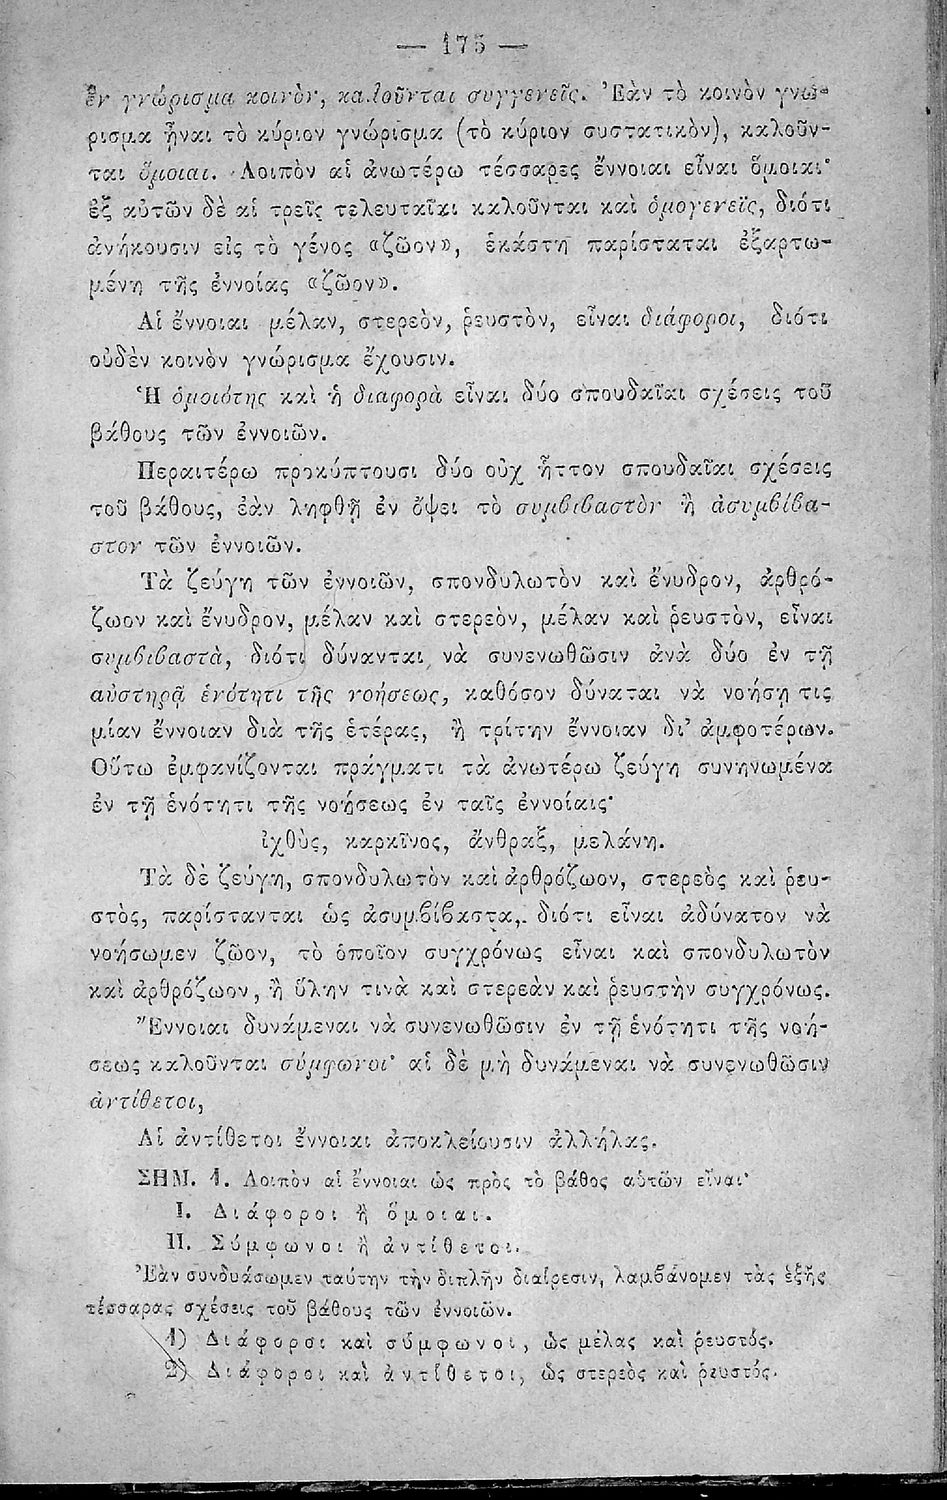 — 175 —
ἓν γνώρισμα κοινὸν, καλοῦνται συγγενεῖς. Ἐὰν τὸ κοινὸν γνώ-
ρισμα ᾖναι τὸ κύριον γνώρισμα (τὸ κύριον συστατικὸν), καλοῦν-
ται ὅμοιαι. Λοιπὸν αἱ ἀνωτέρω τέσσαρες ἔννοιαι εἶναι ὅμοιαι·
ἐξ αὐτῶν δὲ αἱ τρεῖς τελευταῖαι καλοῦνται καὶ ὁμογενεῖς, διότι
ἀνήκουσιν εἰς τὸ γένος «ζῶον», ἑκάστη παρίσταται ἐξαρτω-
μένη τῆς ἐννοίας «ζῶον».
Αἱ ἔννοιαι μέλαν, στερεὸν, ῥευστὸν, εἶναι διάφοροι, διότι
οὐδὲν κοινὸν γνώρισμα ἔχουσιν.
Ἡ ὁμοιότης καὶ ἡ διαφορὰ εἶναι δύο σπουδαῖαι σχέσεις τοῦ
βάθους τῶν ἐννοιῶν.
Περαιτέρω προκύπτουσι δύο οὐχ ἧττον σπουδαῖαι σχέσεις
τοῦ βάθους, ἐὰν ληφθῇ ἐν ὄψει τὸ συμβιβαστὸν ἢ ἀσυμβίβα-
στον τῶν ἐννοιῶν.
Τὰ ζεύγη τῶν ἐννοιῶν, σπονδυλωτὸν καὶ ἔνυδρον, ἀρθρό-
ζωον καὶ ἔνυδρον, μέλαν καὶ στερεὸν, μέλαν καὶ ῥευστὸν, εἶναι
συμβιβαστὰ, διότι δύνανται νὰ συνενωθῶσιν ἀνὰ δύο ἐν τῇ
αὐστηρᾷ ἑνότητι τῆς νοήσεως, καθόσον δύναται νὰ νοήσῃ τις
μίαν ἔννοιαν διὰ τῆς ἑτέρας, ἢ τρίτην ἔννοιαν δι' ἀμφοτέρων.
Οὕτω ἐμφανίζονται πράγματι τὰ ἀνωτέρω ζεύγη συνηνωμένα
ἐν τῇ ἑνότητι τῆς νοήσεως ἐν ταῖς ἐννοίαις·
ἰχθὺς, καρκῖνος, ἄνθραξ, μελάνη.
Τὰ δὲ ζεύγη, σπονδυλωτὸν καὶ ἀρθρόζωον, στερεὸς καὶ ῥευ-
στὸς, παρίστανται ὡς ἀσυμβίβαστα, διότι εἶναι ἀδύνατον νὰ
νοήσωμεν ζῶον, τὸ ὁποῖον συγχρόνως εἶναι καὶ σπονδυλωτὸν
καὶ ἀρθρόζωον, ἢ ὕλην τινὰ καὶ στερεὰν καὶ ῥευστὴν συγχρόνως.
Ἔννοιαι δυνάμεναι νὰ συνενωθῶσιν ἐν τῇ ἑνότητι τῆς νοή-
σεως καλοῦνται σύμφωνοι· αἱ δὲ μὴ δυνάμεναι νὰ συνενωθῶσιν
ἀντίθετοι,
Αἱ ἀντίθετοι ἔννοιαι ἀποκλείουσιν ἀλλήλας.
ΣΗΜ. 1. Λοιπὸν αἱ ἔννοιαι ὡς πρὸς τὸ βάθος αὐτῶν εἶναι·
I. Διάφοροι ἢ ὅμοιαι.
II. Σύμφωνοι ἢ ἀντίθετοι.
Ἐὰν συνδυάσωμεν ταύτην τὴν διπλῆν διαίρεσιν, λαμβάνομεν τὰς ἑξῆς
τέσσαρας σχέσεις τοῦ βάθους τῶν ἐννοιῶν.
1) Διάφοροι καὶ σύμφωνοι, ὡς μέλας καὶ ῥευστός.
2) Διάφοροι καὶ ἀντίθετοι, ὡς στερεὸς καὶ ῥευστός.